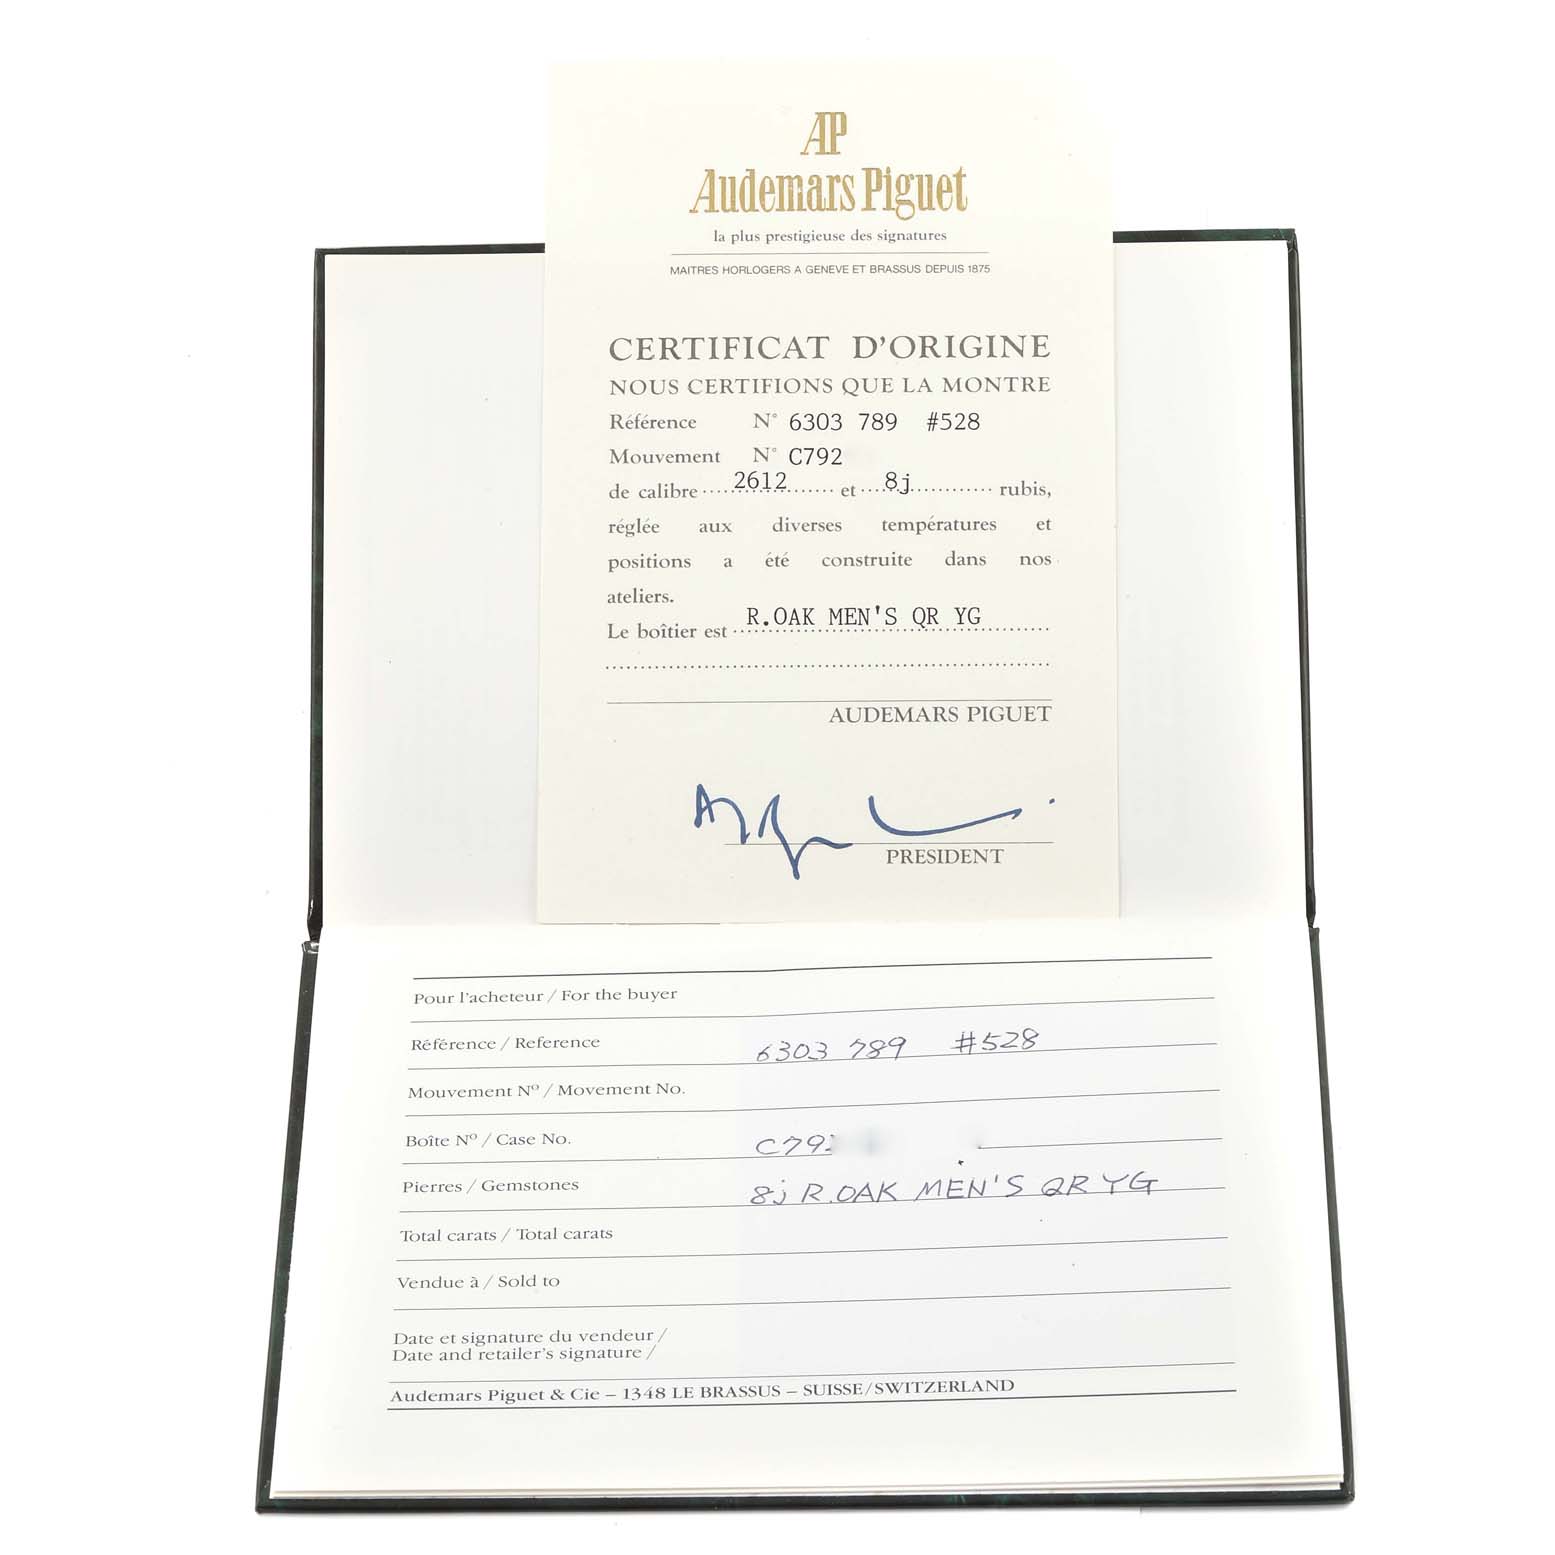 AP
Audemars Piguet
la plus prestigieuse des signatures
MAITRES HORLOGERS A GENEVE ET BRASSUS DEPUIS 1875
CERTIFICAT D'ORIGINE
NOUS CERTIFIONS QUE LA MONTRE
Référence N° 6303 789 #528
Mouvement N° C792
de calibre 2612 et 8j rubis,
réglée aux diverses températures et
positions a été construite dans nos
ateliers.
Le boîtier est R.OAK MEN'S QR YG
AUDEMARS PIGUET
PRESIDENT
Pour l'acheteur / For the buyer
Référence / Reference 6303 789 #528
Mouvement Nº / Movement No.
Boîte Nº / Case No. C792
Pierres / Gemstones 8j R.OAK MEN'S QR YG
Total carats / Total carats
Vendue à / Sold to
Date et signature du vendeur /
Date and retailer's signature /
Audemars Piguet & Cie – 1348 LE BRASSUS – SUISSE/SWITZERLAND